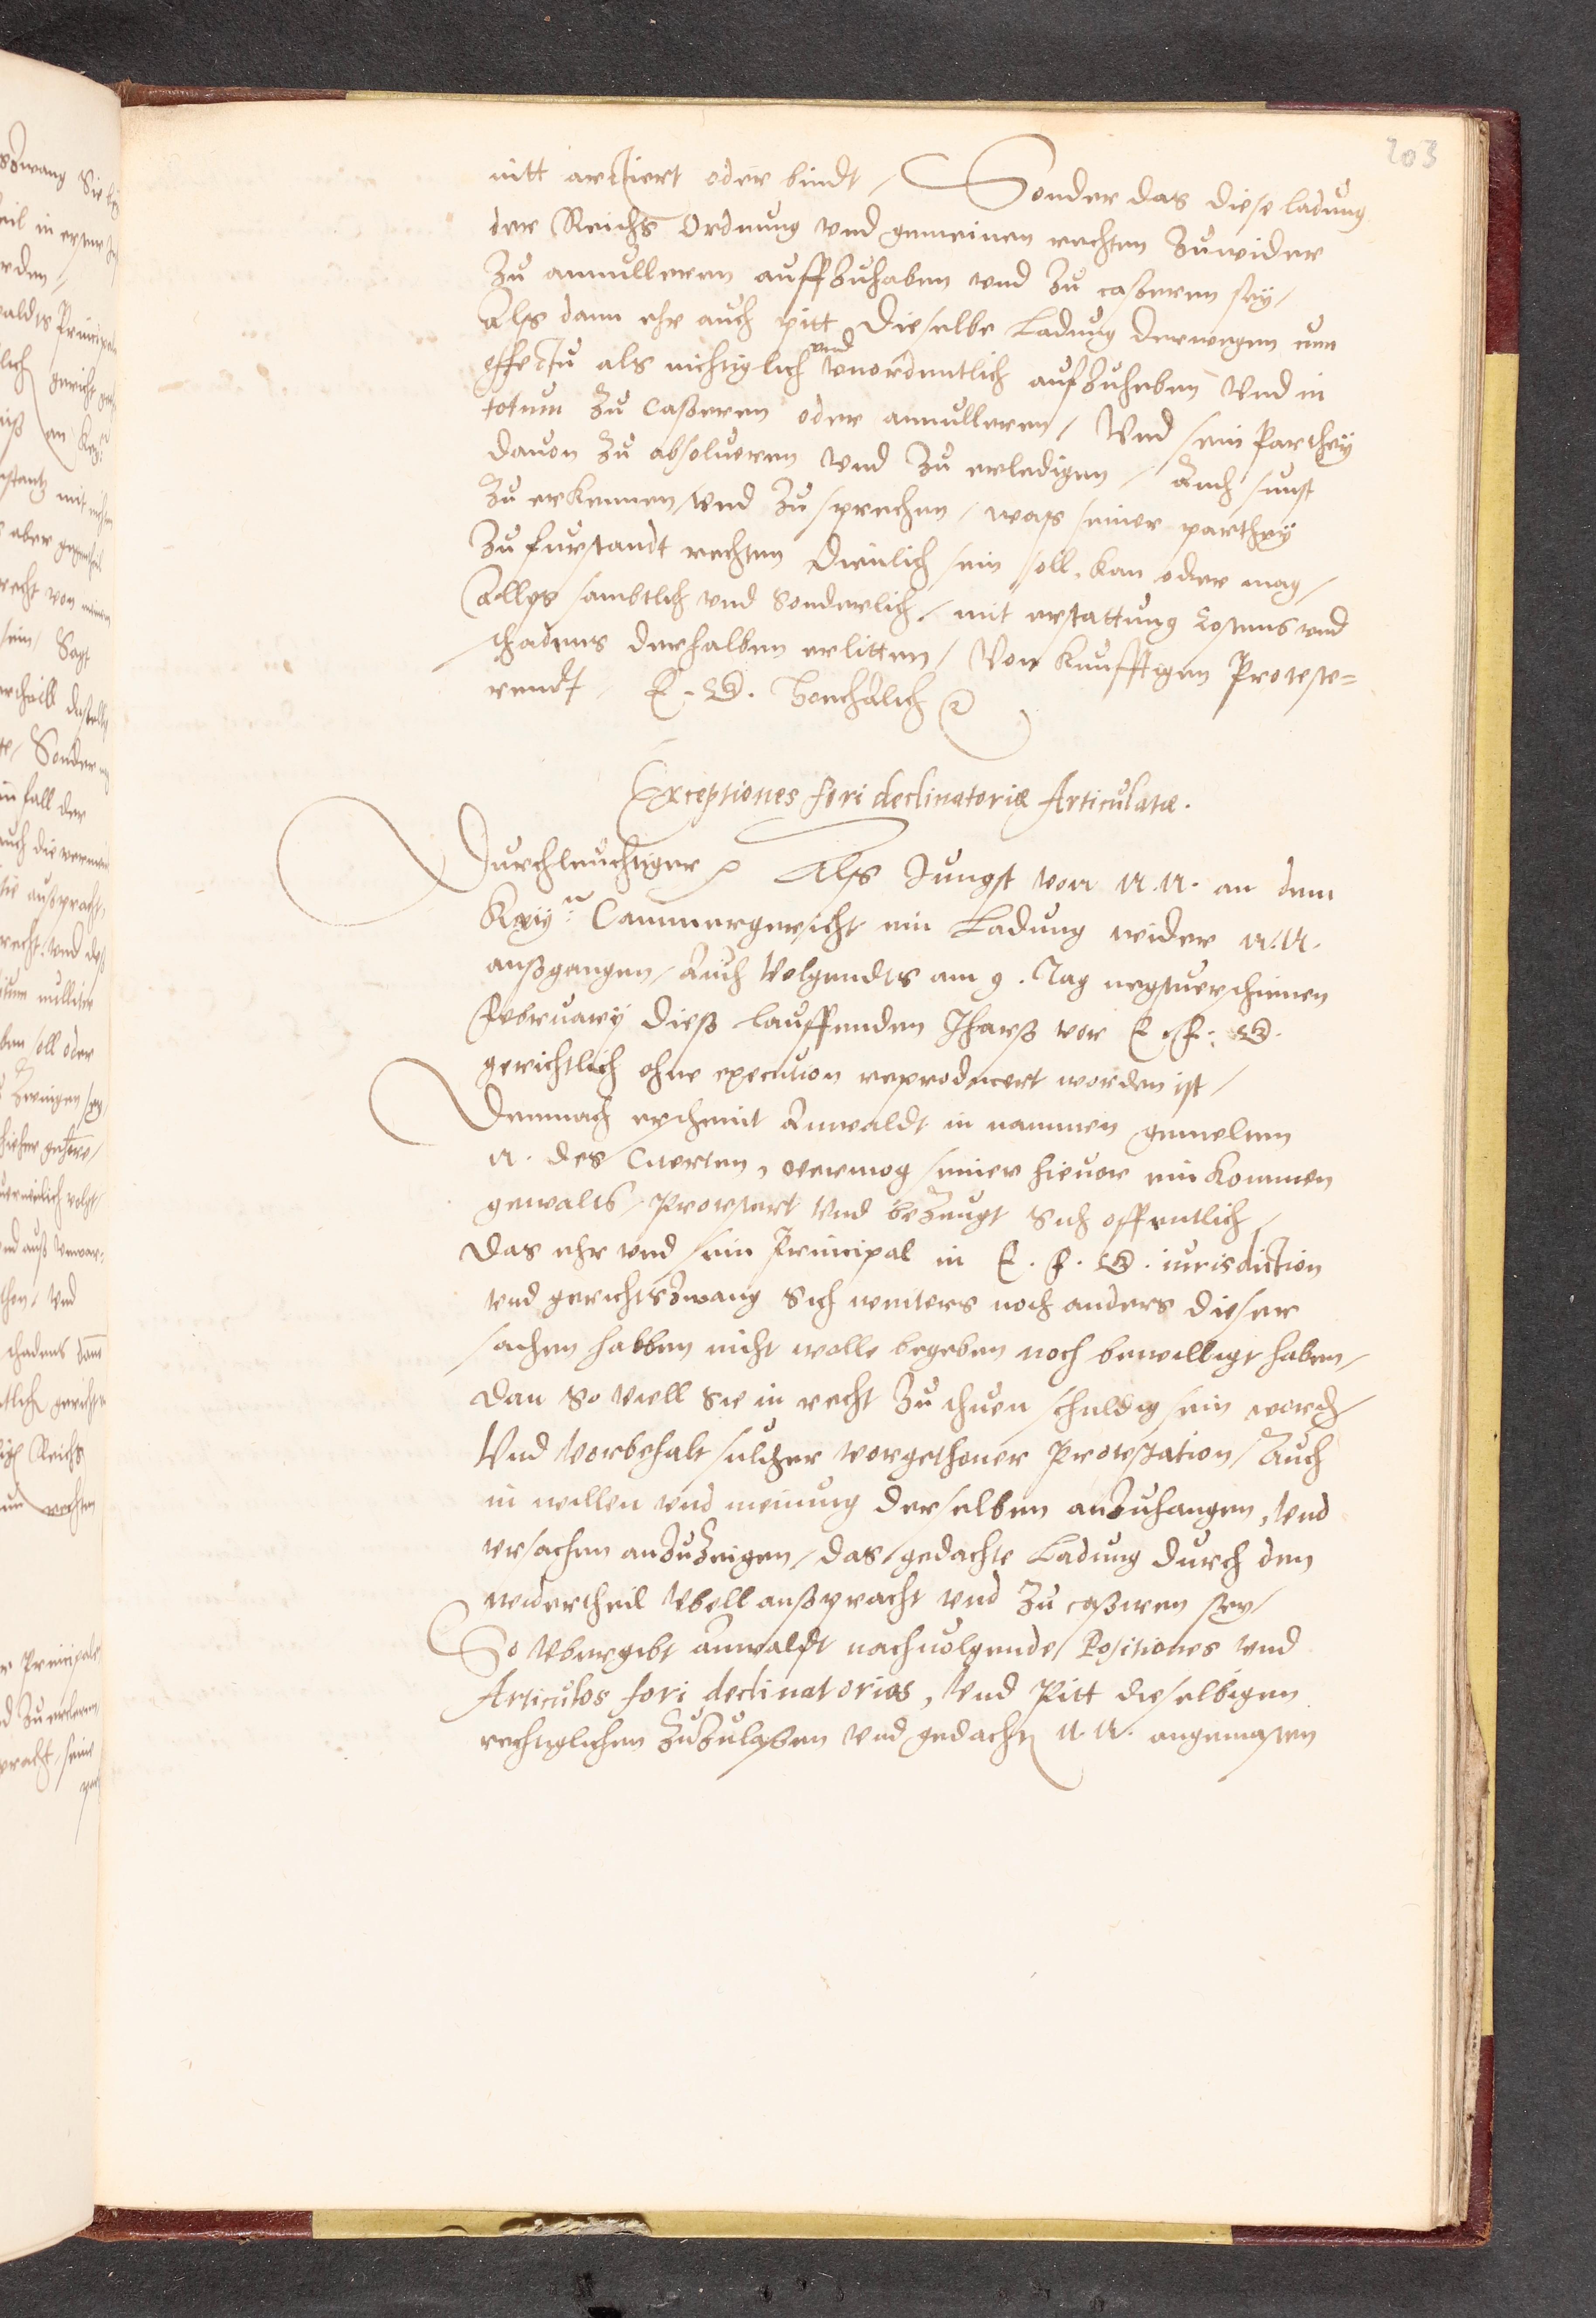 203
nitt arctiert oder bindt / Sonder das diese ladung
der Reichs Ordnung vnd gemeinen rechten zuwider
zu annulleren auffzuhaben vnd zu casseren sey /
Als dann ehr auch pitt dieselbe Ladung derwegen cum
effectu als nichtiglich vnd vnordentlich aufzuheben vnd in
totum zu casseren oder annulleren / Vnd sein Parthey
dauon zu absolueren vnd zu erledigen / Auch sunst
zu erkennen vnd zu sprechen / was seiner parthey
zu furstandt rechten dienlich sein soll, kan oder mag /
Alles sambtlich vnd sonderlich / mit erstattung Costens vnd
schadens derhalben erlitten / Von kunfftigen Proteste=
rendt / E. G.
Exceptiones fori declinatoriæ Articulatæ.
Durchleuchtiger Als Jungst von N. N. an dem
Key: Cammergericht ein Ladung wider N. N.
außgangen / Auch Volgendts am 9. Tag negstuerschinen
February dieß lauffenden Jharß vor E. F. G.
gerichtlich ohne execution reproducert worden ist /
Demnach erscheint Anwaldt in nammen gemelten
N. des Citerten, vermog seiner hieuor ein kommen
gewalts / Protestert Vnd bezeugt sich offentlich /
Das ehr vnd sein Principal in E. F. G. iurisdiction
vnd gerichtszwang sich weiters noch anders dieser
sachen halben nicht wolle begeben noch bewilligt haben /
Dan so viell sie in recht zu thuen schuldig sein
Vnd Vorbehalt sulcher vorgethoner Protestation / Auch
in willen vnd meinung derselben anzuhangen, Vnd
vrsachen anzuzeigen / das gedachte Ladung durch den
widertheil Vbell außpracht vnd zu cassiren sey /
So Vbergibt Anwaldt nachuolgende Positiones vnd
Articulos fori declinatorios, Vnd Pitt dieselbigen
rechtlichen zuzulassen vnd gedachten N. N. angemasten